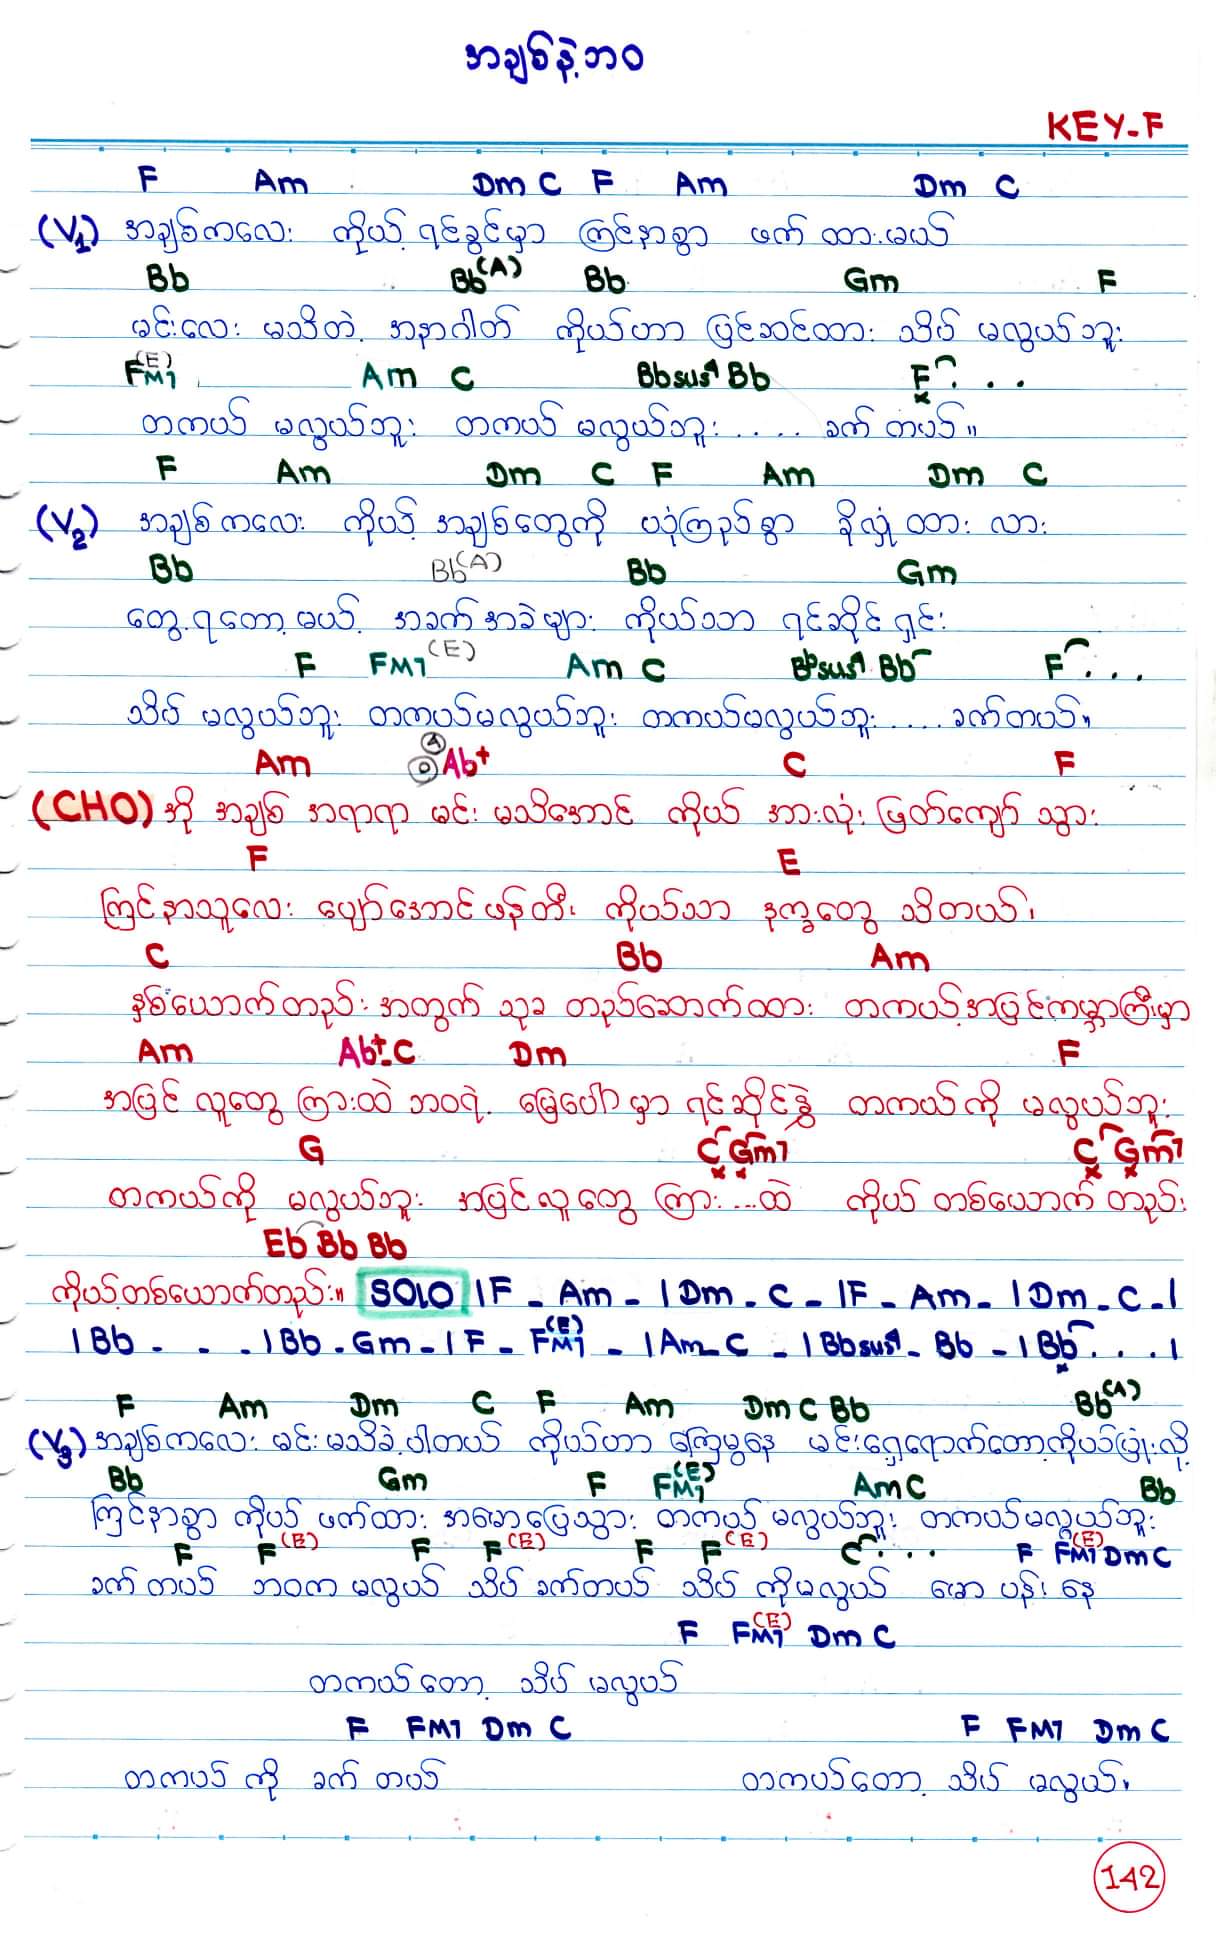 အချစ်နဲ့ဘဝ
KEY-F
F Am Dm C F Am Dm C
(V1) အချစ်ကလေး ကိုယ့် ရင်ခွင်မှာ ကြင်နာစွာ ဖက် ထားမယ်
Bb Bb(A) Bb Gm F
မင်းလေး မသိတဲ့ အနာဂါတ် ကိုယ်ဟာ ပြင်ဆင်ထား သိပ် မလွယ်ဘူး
FM7(E) Am C Bbsus4 Bb F . . .
တကယ် မလွယ်ဘူး တကယ် မလွယ်ဘူး .... ခက် တယ်။
F Am Dm C F Am Dm C
(V2) အချစ်ကလေး ကိုယ့် အချစ်တွေကို ယုံကြည်စွာ ခိုလှုံ ထား လား
Bb Bb(A) Bb Gm
တွေ့ရတော့မယ့် အခက်အခဲများ ကိုယ်သာ ရင်ဆိုင် ရှင်း
F FM7(E) Am C Bbsus4 Bb F . . .
သိပ် မလွယ်ဘူး တကယ်မလွယ်ဘူး တကယ်မလွယ်ဘူး .... ခက်တယ်။
Am D(A) Ab+ C F
(CHO) အို အချစ် အရာရာ မင်း မသိအောင် ကိုယ် အားလုံး ဖြတ်ကျော် သွား
F E
ကြင်နာသူလေး ပျော်အောင်ဖန်တီး ကိုယ်သာ ဒုက္ခတွေ သိတယ်၊
C Bb Am
နှစ်ယောက်တည်း အတွက် သုခ တည်ဆောက်ထား တကယ့်အပြင်ကမ္ဘာကြီးမှာ
Am Ab+-C Dm F
အပြင် လူတွေ ကြားထဲ ဘဝရဲ့ မြေပေါ်မှာ ရင်ဆိုင်နွှဲ တကယ်ကို မလွယ်ဘူး
G C Gm7 C Gm7
တကယ်ကို မလွယ်ဘူး အပြင်လူတွေ ကြား...ထဲ ကိုယ် တစ်ယောက် တည်း
Eb Bb Bb
ကိုယ့်တစ်ယောက်တည်း။ SOLO | F - Am - | Dm - C - | F - Am - | Dm - C - |
| Bb - - - | Bb - Gm - | F - FM7(E) - | Am - C - | Bbsus4 - Bb - | Bb . . . |
F Am Dm C F Am Dm C Bb Bb(A)
(V3) အချစ်ကလေး မင်း မသိခဲ့ပါတယ် ကိုယ်ဟာ ကြေမွနေ မင်းရှေ့ရောက်တော့ကိုယ်ပြုံးလို့
Bb Gm F FM7(E) Am C Bb
ကြင်နာစွာ ကိုယ့် ဖက်ထား အမောပြေသွား တကယ် မလွယ်ဘူး တကယ်မလွယ်ဘူး
F F(E) F F(E) F F(E) C . . . F FM7(E) Dm C
ခက် တယ် ဘဝက မလွယ် သိပ် ခက်တယ် သိပ် ကိုမလွယ် မော ပန်း နေ
F FM7(E) Dm C
တကယ်တော့ သိပ် မလွယ်
F FM7 Dm C F FM7 Dm C
တကယ် ကို ခက် တယ် တကယ်တော့ သိပ် မလွယ်၊
142